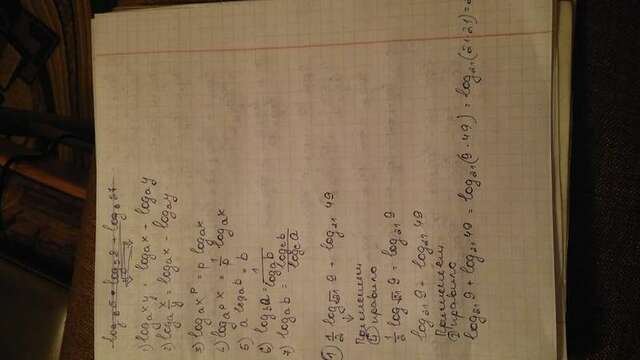 log₆5 · log₅2 + log₆27
1) logₐxy = logₐx - logₐy
2) logₐ x/y = logₐx - logₐy
3) logₐxᵖ = p logₐx
4) logₐᵖ x = 1/p logₐx
5) a^(logₐb) = b
6) log_b a = 1/(logₐb)
7) logₐb = log_c b / log_c a
1) 1/2 log_√21 9 + log₂₁ 49
Применим
4 правило
1/2 log_√21 9 = log₂₁ 9
log₂₁ 9 + log₂₁ 49
Применяем
1 правило
log₂₁ 9 + log₂₁ 49 = log₂₁(9 · 49) = log₂₁(21·21) =